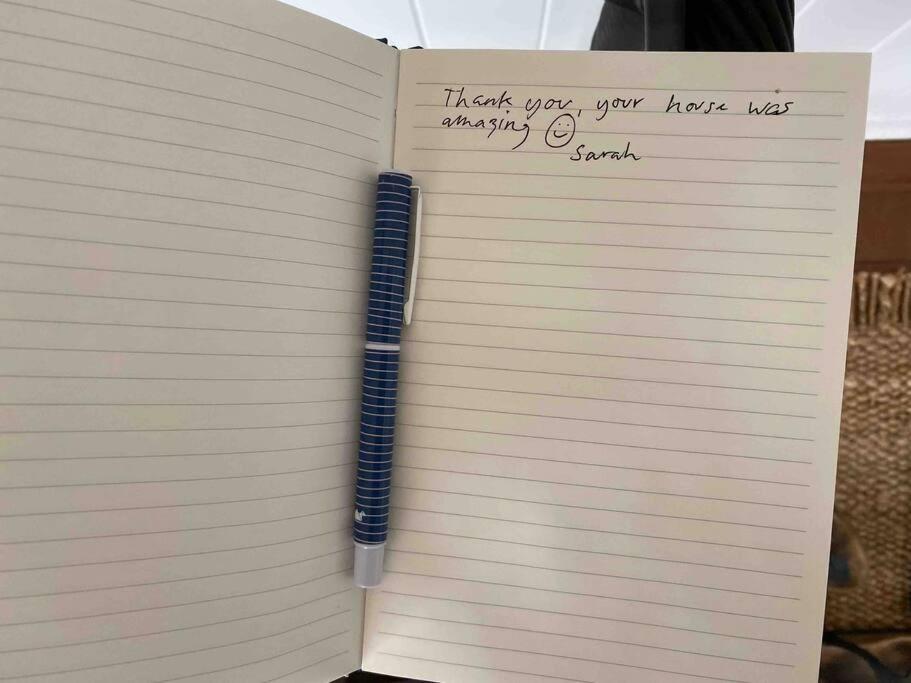 Thank you, your house was
amazing ☺
Sarah